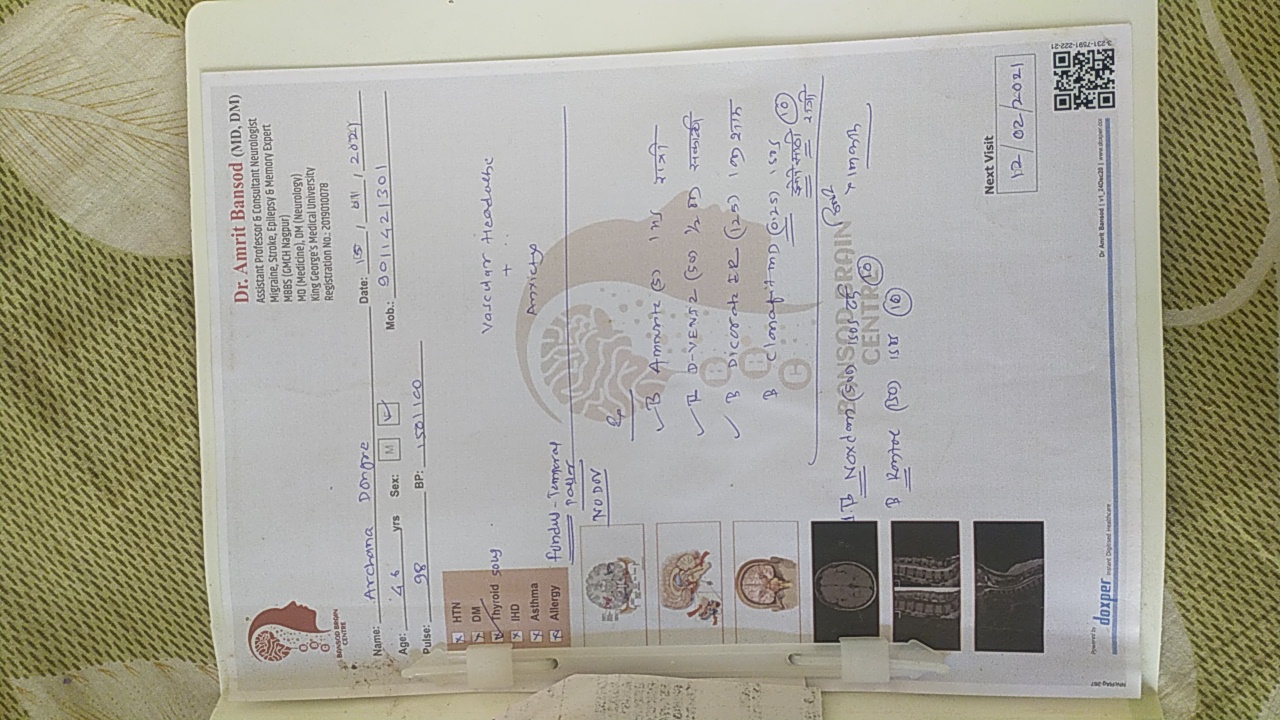 Dr. Amrit Bansod (MD, DM)
Assistant Professor & Consultant Neurologist
Migraine, Stroke, Epilepsy & Memory Expert
MBBS (GMCH Nagpur)
MD (Medicine), DM (Neurology)
King George's Medical University
Registration No.: 2019010078
BANSOD BRAIN
CENTRE
Name: Archana Dongre
Date: 15 / 01 / 2021
Age: 46 yrs Sex: M
Mob.: 9011421301
Pulse: 98 BP:
HTN
DM
Thyroid
IHD
Asthma
Allergy
Vascular Headache
+
Anxiety
Fundus - Temporal
Pallor
(5) 1 रात्री
D-VENIZ (50) 1/2 सकाळी
ER (125)
Clonafit MD (0.25) 1 SOS
साठी 10
BANSOD BRAIN
CENTRE
(500) 1 SOS
10
(150) 1 SOS 10
Next Visit
12/02/2021
Powered by doxper Instant Digitised Healthcare
Dr Amrit Bansod | v1_24Dec20 | www.doxper.co